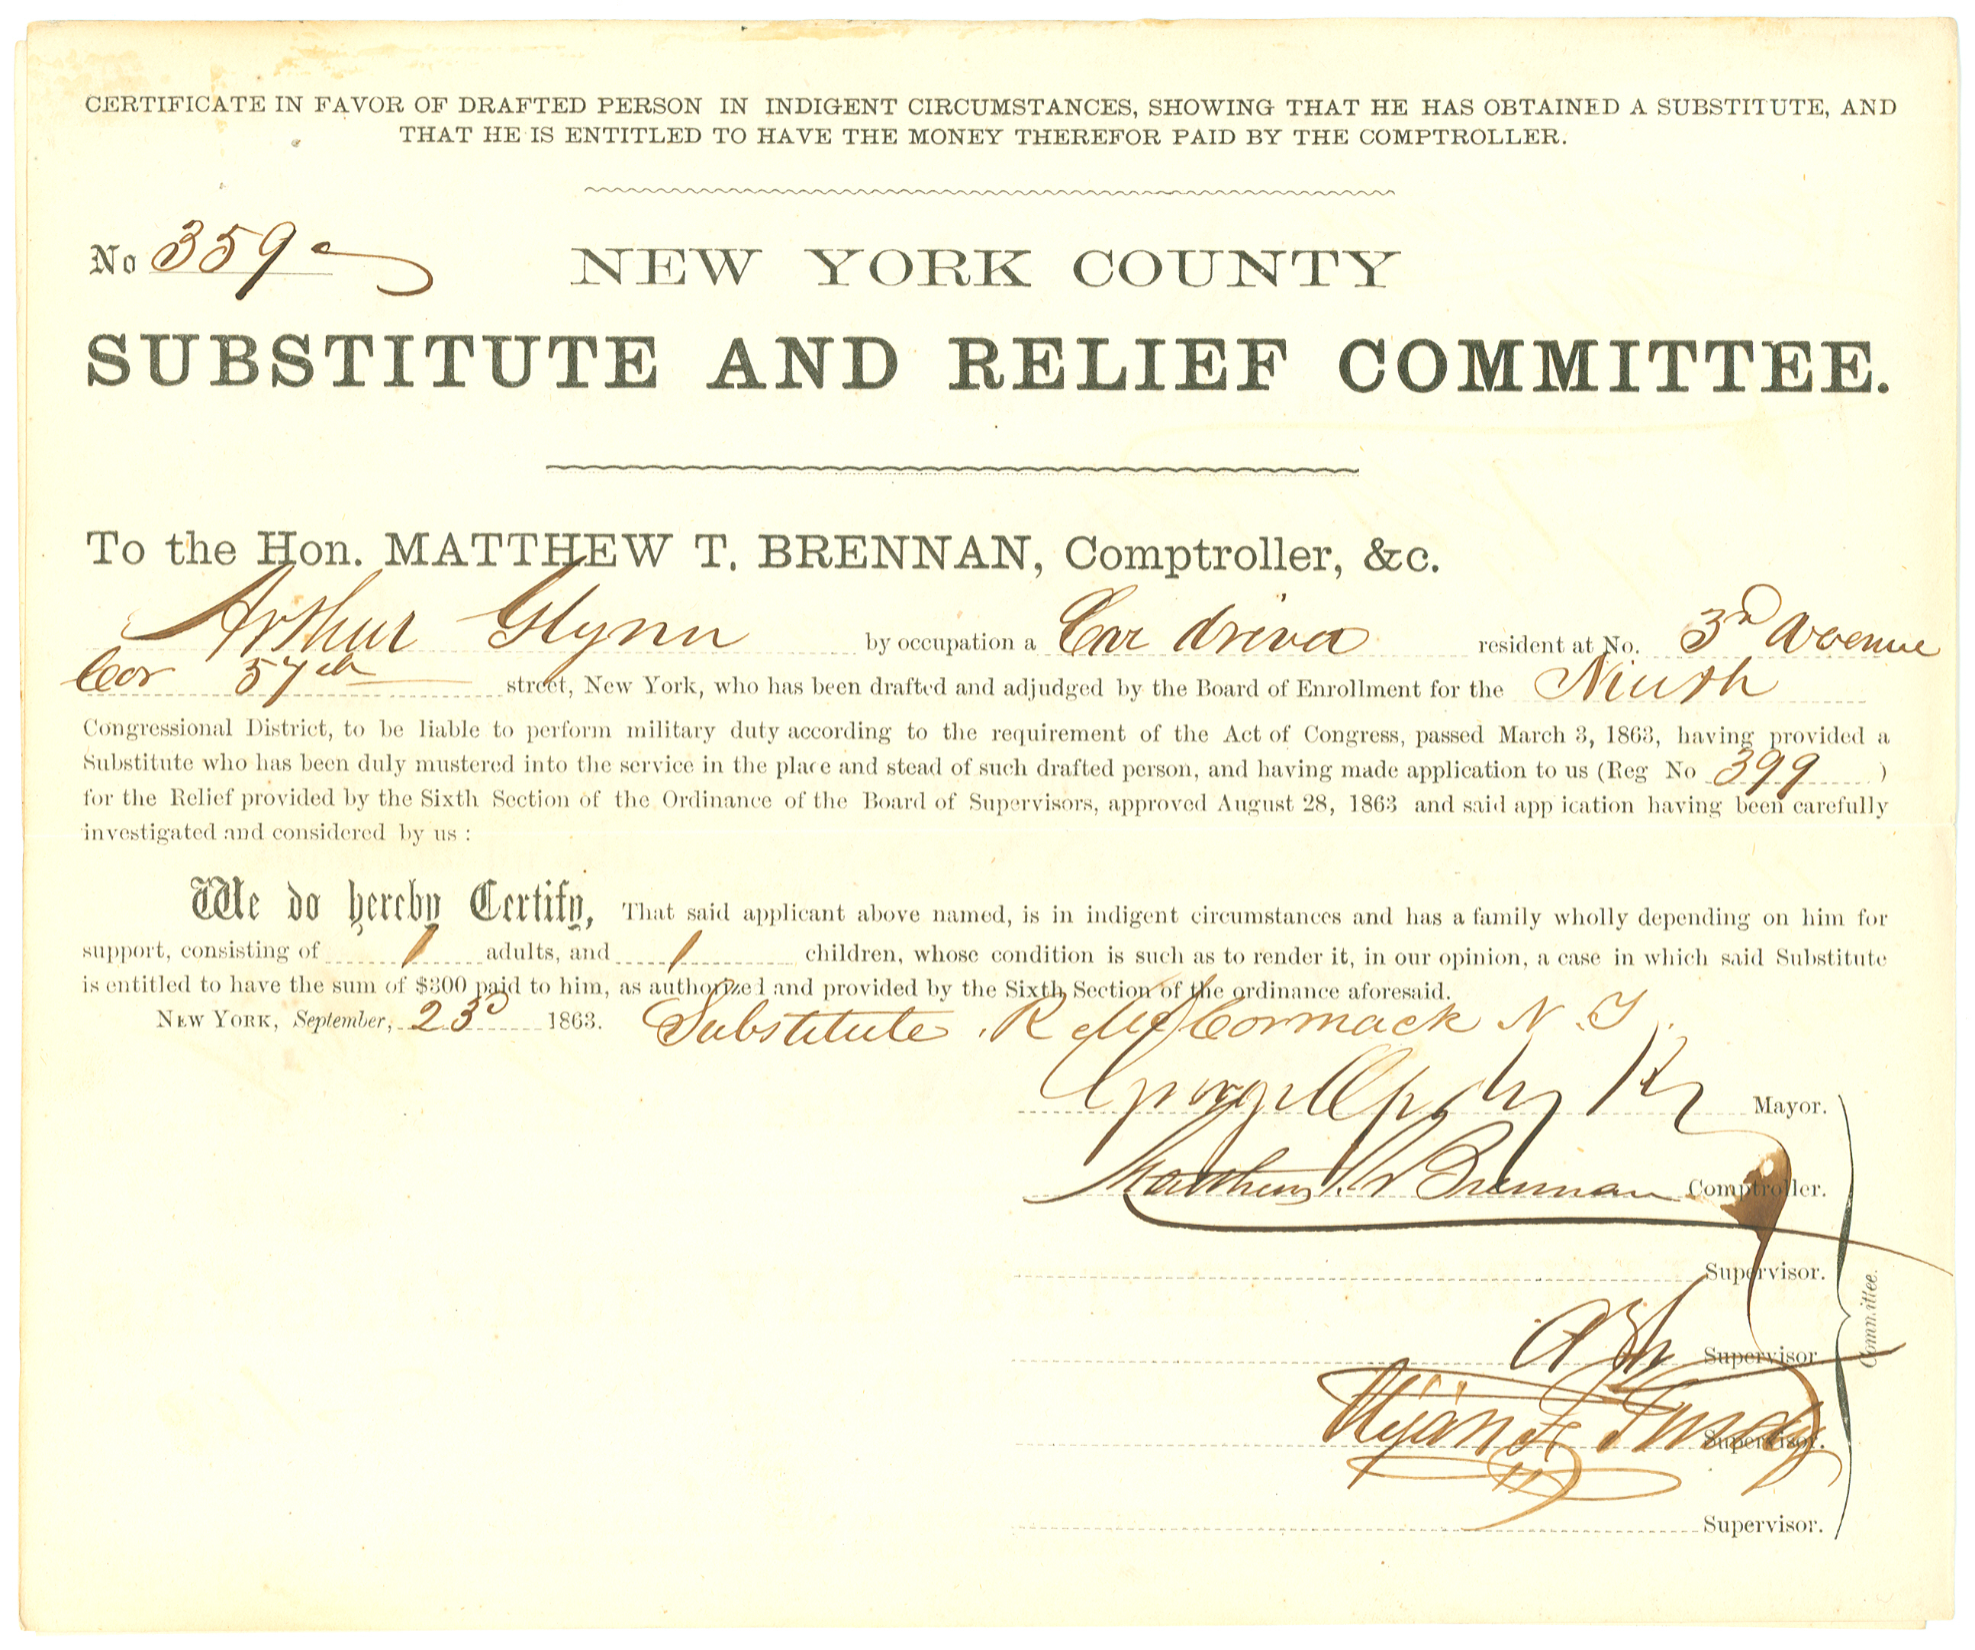 CERTIFICATE IN FAVOR OF DRAFTED PERSON IN INDIGENT CIRCUMSTANCES, SHOWING THAT HE HAS OBTAINED A SUBSTITUTE, AND
THAT HE IS ENTITLED TO HAVE THE MONEY THEREFOR PAID BY THE COMPTROLLER.
No 359
NEW YORK COUNTY
SUBSTITUTE AND RELIEF COMMITTEE.
To the Hon. MATTHEW T. BRENNAN, Comptroller, &c.
Arthur Glynn by occupation a Car driver resident at No. 3d Avenue
Cor 57th street, New York, who has been drafted and adjudged by the Board of Enrollment for the Ninth
Congressional District, to be liable to perform military duty according to the requirement of the Act of Congress, passed March 3, 1863, having provided a
Substitute who has been duly mustered into the service in the place and stead of such drafted person, and having made application to us (Reg No 399 )
for the Relief provided by the Sixth Section of the Ordinance of the Board of Supervisors, approved August 28, 1863 and said app ication having been carefully
investigated and considered by us :
We do hereby Certify, That said applicant above named, is in indigent circumstances and has a family wholly depending on him for
support, consisting of 1 adults, and 1 children, whose condition is such as to render it, in our opinion, a case in which said Substitute
is entitled to have the sum of $300 paid to him, as authorized and provided by the Sixth Section of the ordinance aforesaid.
NEW YORK, September, 23d 1863. Substitute R McCormack N.Y.
George Opdyke Mayor.
Matthew T. Brennan Comptroller.
Supervisor.
Supervisor.
Supervisor.
Supervisor.
Committee.